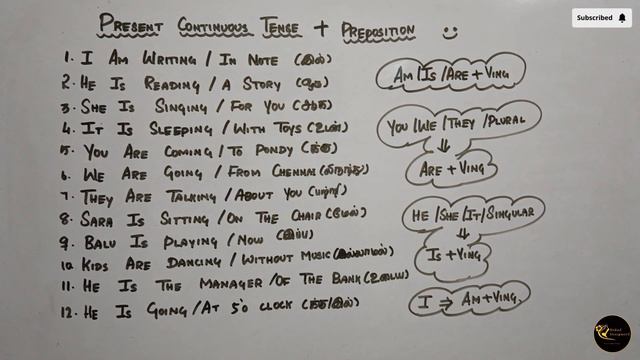 Present Continuous Tense + Preposition
1. I Am Writing / In Note (இல்)
2. He Is Reading / A Story (ஒரு)
3. She Is Singing / For You
4. It Is Sleeping / With Toys (உடன்)
5. You Are Coming / To Pondy (க்கு)
6. We Are Going / From Chennai (லிருந்து)
7. They Are Talking / About You (பற்றி)
8. Sara Is Sitting / On The Chair (மேல்)
9. Balu Is Playing / Now
10. Kids Are Dancing / Without Music (இல்லாமல்)
11. He Is The Manager / Of The Bank (உடைய)
12. He Is Going / At 5'o Clock (க்கு/இல்)
Am / Is / Are + Ving
You / We / They / Plural
⇓
Are + Ving
He / She / It / Singular
⇓
Is + Ving
I ⇒ Am + Ving.
Subscribed